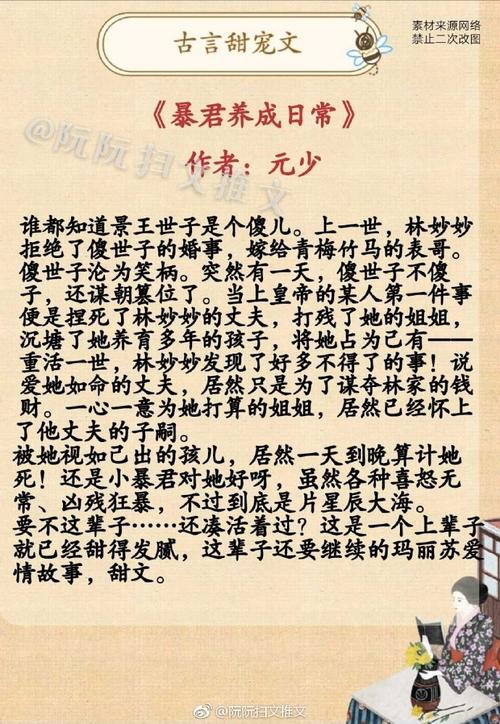 素材来源网络
禁止二次改图
古言甜宠文
《暴君养成日常》
@阮阮扫文推文
作者：元少
谁都知道景王世子是个傻儿。上一世，林妙妙
拒绝了傻世子的婚事，嫁给青梅竹马的表哥。
傻世子沦为笑柄。突然有一天，傻世子不傻
子，还谋朝篡位了。当上皇帝的某人第一件事
便是捏死了林妙妙的丈夫，打残了她的姐姐，
沉塘了她养育多年的孩子，将她占为己有——
重活一世，林妙妙发现了好多不得了的事！说
爱她如命的丈夫，居然只是为了谋夺林家的钱
财。一心一意为她打算的姐姐，居然已经怀上
了他丈夫的子嗣。
被她视如己出的孩儿，居然一天到晚算计她
死！还是小暴君对她好呀，虽然各种喜怒无
常、凶残狂暴，不过到底是片星辰大海。
要不这辈子……还凑活着过？这是一个上辈子
就已经甜得发腻，这辈子还要继续的玛丽苏爱
情故事，甜文。
@阮阮扫文推文